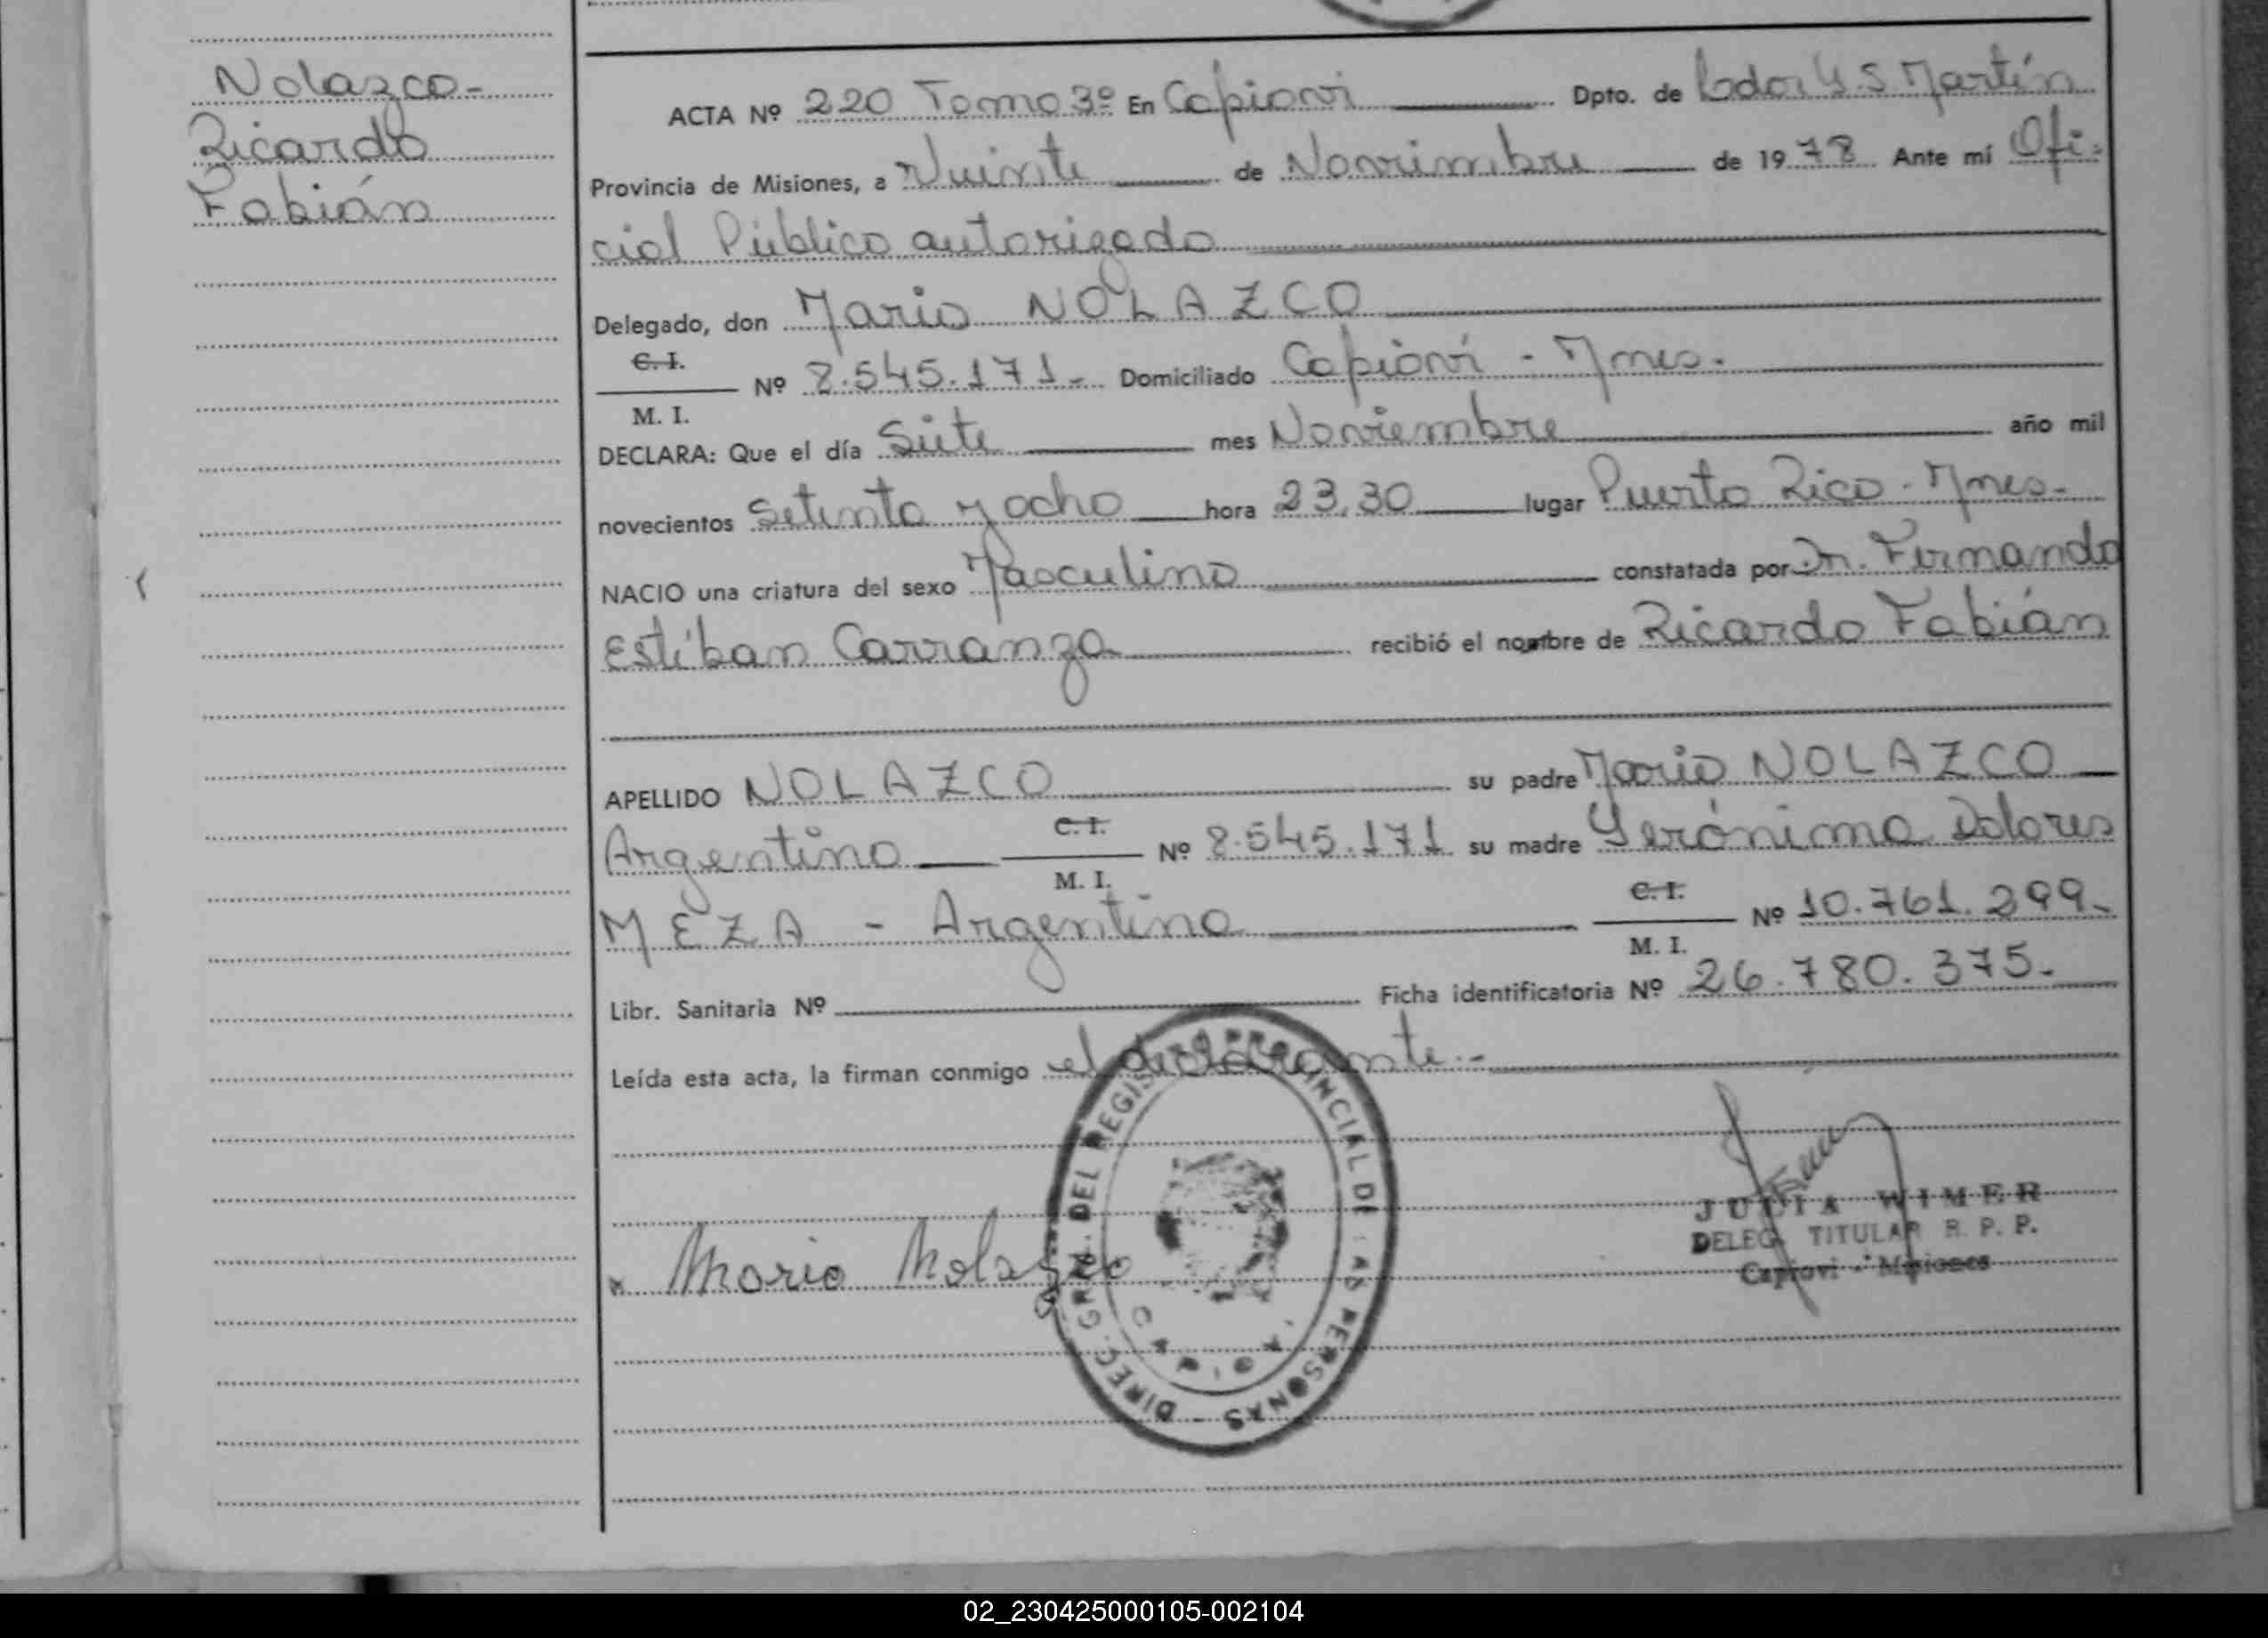 Nolazco-
Ricardo
Fabián
ACTA Nº 220 Tomo 3º En Capioví Dpto. de Ldor G. S Martín
Provincia de Misiones, a Veinte de Noviembre de 1978 Ante mí Ofi-
cial Público autorizado
Delegado, don Mario NOLAZCO
C. I.
Nº 8.545.171- Domiciliado Capioví - Mnes.
M. I.
DECLARA: Que el día Siete mes Noviembre año mil
novecientos Setenta y ocho hora 23,30 lugar Puerto Rico - Mnes-
NACIO una criatura del sexo Masculino constatada por Dr. Fernando
Estéban Carranza recibió el nombre de Ricardo Fabián
APELLIDO NOLAZCO su padre Mario NOLAZCO
C. I.
Argentino Nº 8.545.171 su madre Gerónima Dolores
M. I.
C. I.
MEZA - Argentina Nº 10.761.299-
M. I.
Libr. Sanitaria Nº Ficha identificatoria Nº 26.780.375-
Leída esta acta, la firman conmigo el declarante.-
DIREC. GRAL. DEL REGISTRO PROVINCIAL DE LAS PERSONAS
JULIA WIMER
DELEG. TITULAR R. P. P.
Capioví - Misiones
x Mario Nolazco
02_230425000105-002104